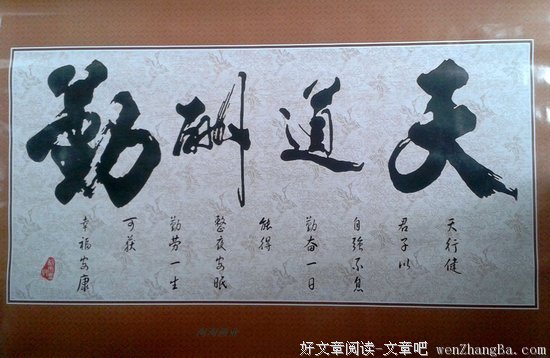 天道酬勤
天行健
君子以
自强不息
勤奋一日
能得
整夜安眠
勤劳一生
可获
幸福安康
好文章阅读-文章吧 wenZhangBa.com